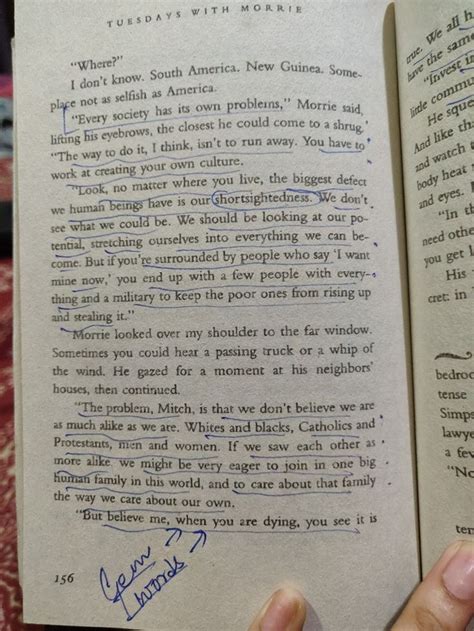 TUESDAYS WITH MORRIE
"Where?"
I don't know. South America. New Guinea. Some-
place not as selfish as America.
"Every society has its own problems," Morrie said,
lifting his eyebrows, the closest he could come to a shrug.
"The way to do it, I think, isn't to run away. You have to
work at creating your own culture.
"Look, no matter where you live, the biggest defect
we human beings have is our shortsightedness. We don't
see what we could be. We should be looking at our po-
tential, stretching ourselves into everything we can be-
come. But if you're surrounded by people who say 'I want
mine now,' you end up with a few people with every-
thing and a military to keep the poor ones from rising up
and stealing it."
Morrie looked over my shoulder to the far window.
Sometimes you could hear a passing truck or a whip of
the wind. He gazed for a moment at his neighbors'
houses, then continued.
"The problem, Mitch, is that we don't believe we are
as much alike as we are. Whites and blacks, Catholics and
Protestants, men and women. If we saw each other as
more alike, we might be very eager to join in one big
human family in this world, and to care about that family
the way we care about our own.
"But believe me, when you are dying, you see it is
156
Gem
words
true. We all h
have the same
"Invest in
little commu
He sque
And like th
and watch
body heat
and eyes.
"In th
need othe
you get l
His
cret: in
bedroo
tense
Simps
lawye
a few
"No
ten